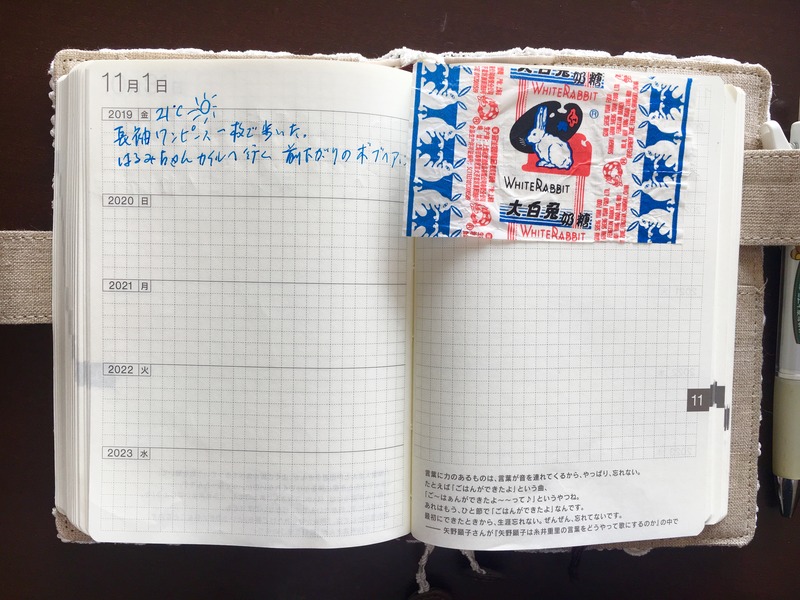 11月1日
2019 金 21℃
長袖ワンピース一枚で歩いた。
はるみちゃん カイルへ行く 前下がりのボブヘア。
2020 日
2021 月
2022 火
2023 水
大白兎奶糖
WHITE RABBIT
®
WHITE RABBIT
大白兎奶糖
WHITE RABBIT
11
言葉に力のあるものは、言葉が音を連れてくるから、やっぱり、忘れない。
たとえば「ごはんができたよ」という曲、
「ご〜はぁんができたよ〜〜って♪」というやつね。
あれはもう、ひと節で「ごはんができたよ」なんです。
最初にできたときから、生涯忘れない。ぜんぜん、忘れてないです。
―― 矢野顕子さんが『矢野顕子は糸井重里の言葉をどうやって歌にするのか』の中で